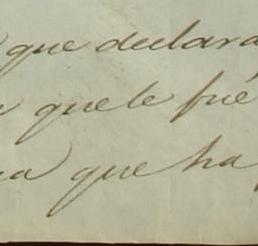 que declara
que le fué
que ha